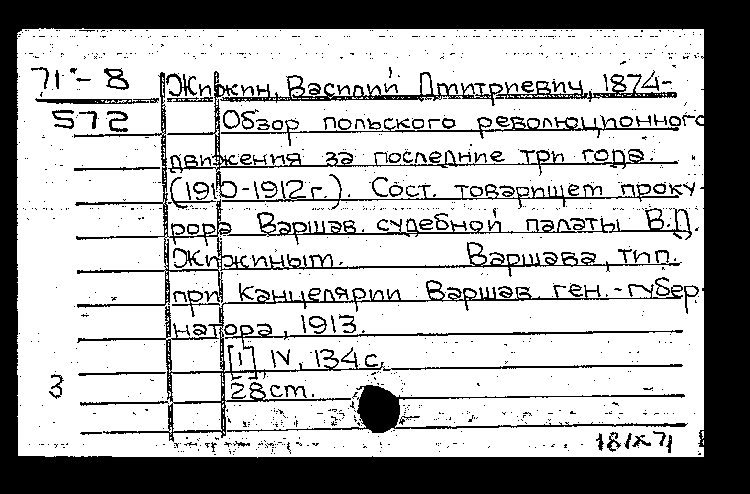 71-8 Жижин, Василий Дмитриевич, 1874-
572 Обзор польского революционного
движения за последние три года.
(1910-1912 г.). Сост. товарищем проку-
рора Варшав. судебной палаты В.Д.
Жижиным. Варшава, тип.
при канцелярии Варшав. ген.-губер-
натора, 1913.
[1], IV, 134 с.
3 28 ст.
18 IX 71